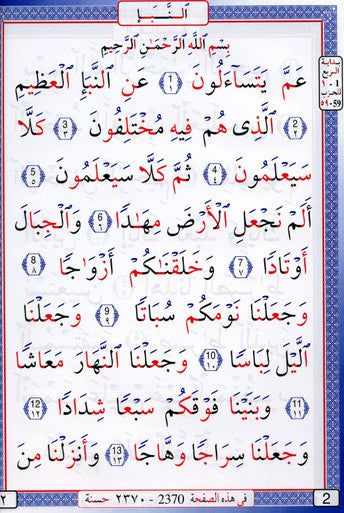 النَّبَإِ
بِسْمِ اللَّهِ الرَّحْمَٰنِ الرَّحِيمِ
بداية
الربع
١ - 1
للحزب
٥٩-59
عَمَّ يَتَسَآءَلُونَ 1 ١ عَنِ النَّبَإِ الْعَظِيمِ
2 ٢ الَّذِى هُمْ فِيهِ مُخْتَلِفُونَ 3 ٣ كَلَّا
سَيَعْلَمُونَ 4 ٤ ثُمَّ كَلَّا سَيَعْلَمُونَ 5 ٥
أَلَمْ نَجْعَلِ الْأَرْضَ مِهَٰدًا 6 ٦ وَالْجِبَالَ
أَوْتَادًا 7 ٧ وَخَلَقْنَٰكُمْ أَزْوَاجًا 8 ٨
وَجَعَلْنَا نَوْمَكُمْ سُبَاتًا 9 ٩ وَجَعَلْنَا
اللَّيْلَ لِبَاسًا 10 ١٠ وَجَعَلْنَا النَّهَارَ مَعَاشًا
11 ١١ وَبَنَيْنَا فَوْقَكُمْ سَبْعًا شِدَادًا 12 ١٢
وَجَعَلْنَا سِرَاجًا وَهَّاجًا 13 ١٣ وَأَنزَلْنَا مِنَ
2 في هذه الصفحة 2370 - ٢٣٧٠ حسنة ٢